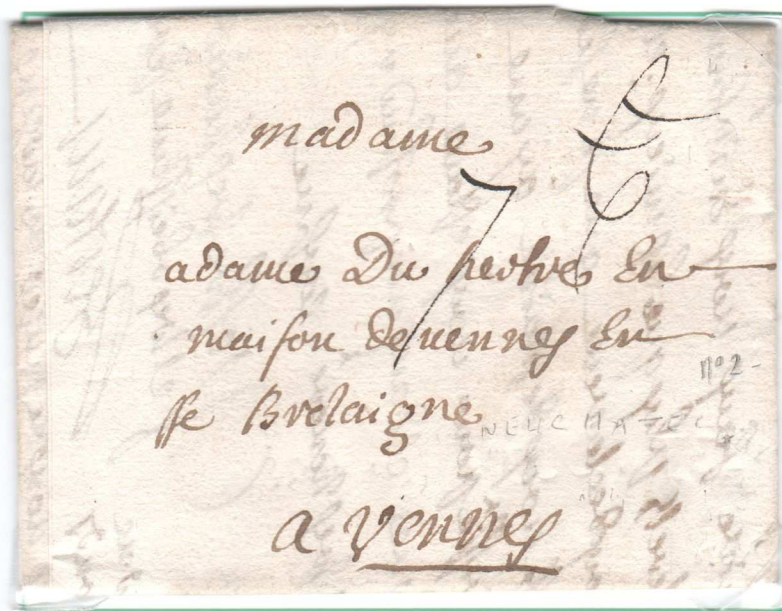 madame
7
adame Du hertre En
maison de vennes En
Bretaigne
n° 2
NEUCHATEL
a vennes